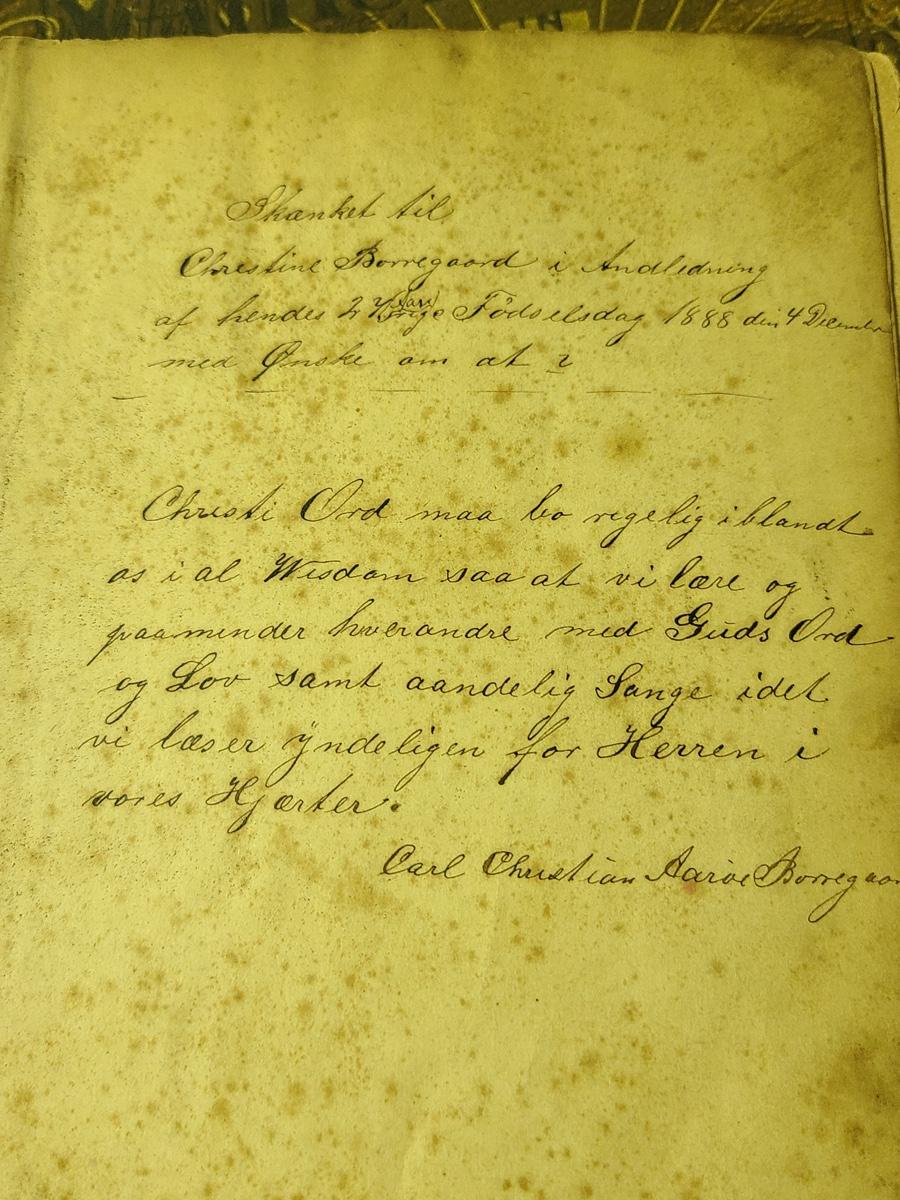 Skænket til
Christine Borregaard i Andledning
af hendes Födselsdag 1888 den 4 December
med Ønske om at
Christi Ord maa bo rigelig iblandt
os i al Wisdom saa at vi lære og
paaminder hverandre med Guds Ord
og Lov samt aandelig Sange idet
vi læser yndeligen for Herren i
vores Hjærter.
Carl Christian Borregaar